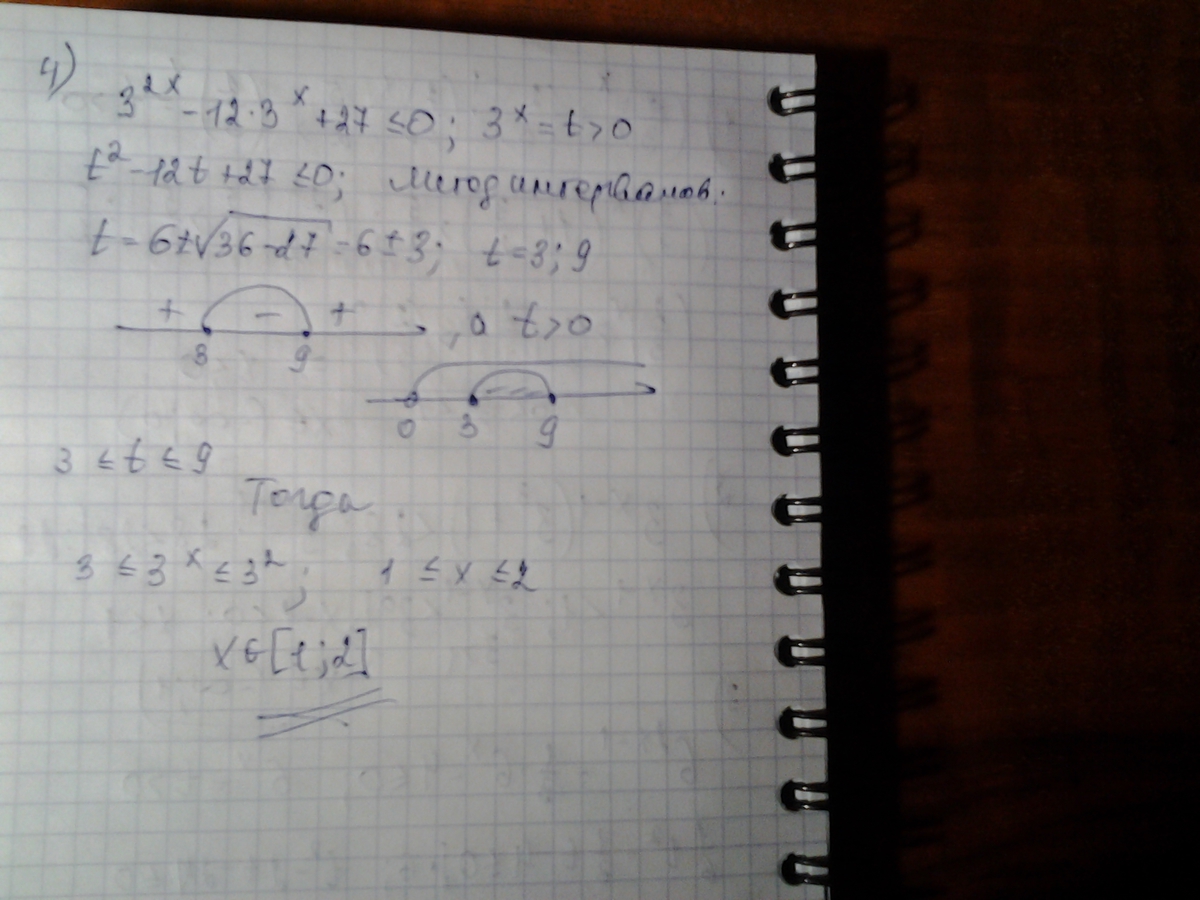 4)
3^{2x} - 12·3^x + 27 ≤ 0; 3^x = t > 0
t² - 12t + 27 ≤ 0; Метод интервалов.
t = 6±√36-27 = 6 ± 3; t = 3; 9
+ - +
3 9
, а t > 0
0 3 9
3 ≤ t ≤ 9
Тогда
3 ≤ 3^x ≤ 3²; 1 ≤ x ≤ 2
x ∈ [1; 2]